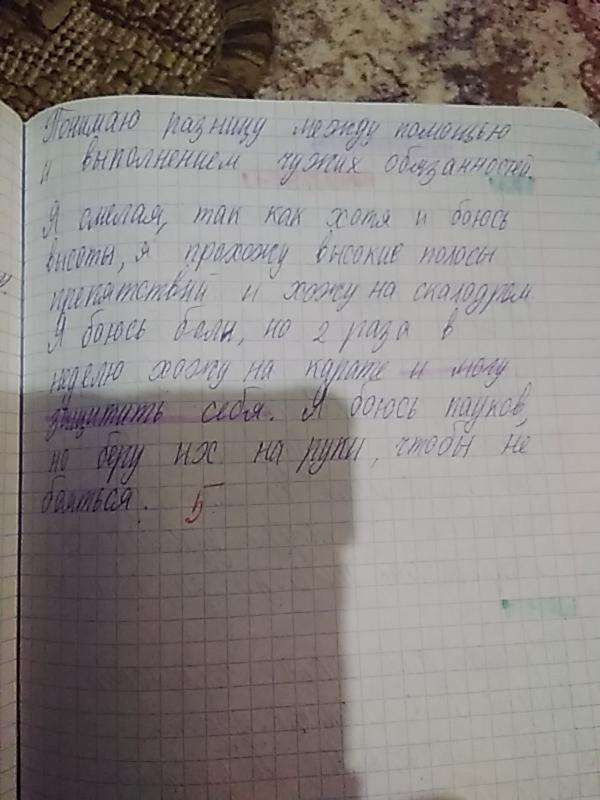 Понимаю разницу между помощью
и выполнением чужих обязанностей.
Я смелая, так как хотя и боюсь
высоты, я прохожу высокие полосы
препятствий и хожу на скалодром
Я боюсь боли, но 2 раза в
неделю хожу на карате и могу
защитить себя. Я боюсь пауков,
но беру их на руки, чтобы не
бояться. 5